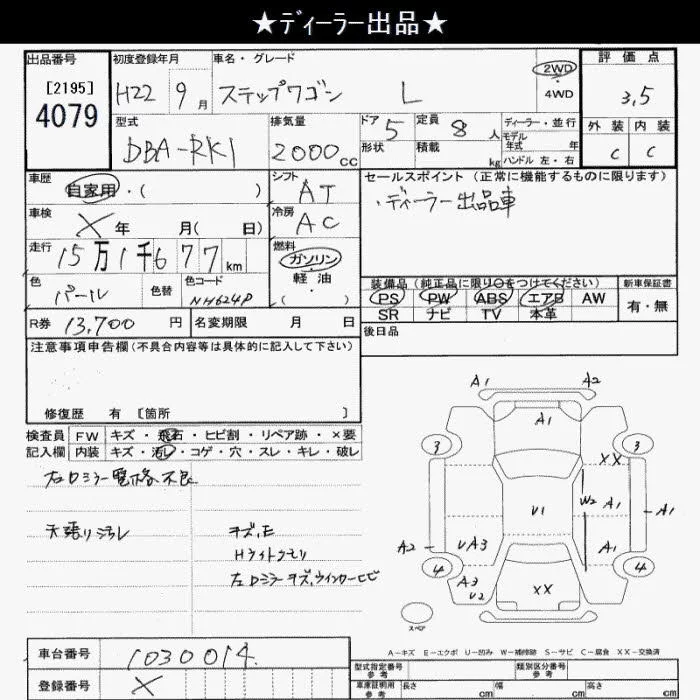 ★ディーラー出品★
出品番号 初度登録年月 車名・グレード 評価点
[2195] H22 9月 ステップワゴン L 2WD 3,5
4079 4WD
型式 排気量 ドア 5 定員 8人 ディーラー・並行 外装 内装
DBA-RK1 2000cc 形状 積載 kg モデル年式 年 C C
ハンドル 左・右
車歴 自家用・( ) シフト AT セールスポイント (正常に機能するものに限ります)
車検 X年 月( 日) 冷房 AC ・ディーラー出品車
走行 15万1千677km 燃料 ガソリン
軽油
( )
色 パール 色替 色コード NH624P 装備品(純正品に限り○をつけてください) 新車保証書
PS PW ABS エアB AW 有・無
SR ナビ TV 本革
R券 13,700円 名変期限 月 日 後日品
注意事項申告欄(不具合内容等は具体的に記入して下さい)
修復歴 有 [箇所 ]
検査員 FW キズ・飛石・ヒビ割・リペア跡・×要
記入欄 内装 キズ・汚れ・コゲ・穴・スレ・キレ・破レ
左ロミラー電格不良
天張り汚レ キズ,E
Hライトクモリ
左ロミラーキズ,ウインカーヒビ
A1 A2
A1
3 3
XX
U1 W2 A1 A1
A2 UA3 A1
4 A3 U2 XX 4
スペア
A−キズ E−エクボ U−凹み W−補修跡 S−サビ C−腐食 XX−交換済
車台番号 1030014
登録番号 X
型式指定番号 参考 類別区分番号 参考
車庫証明用 参考 長さ cm 幅 cm 高さ cm